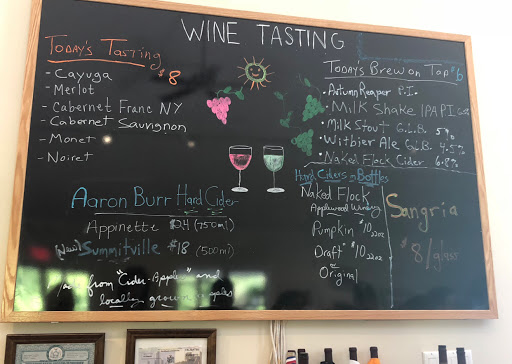 WINE TASTING
Today's Tasting
$8
- Cayuga
- Merlot
- Cabernet Franc NY
- Cabernet Sauvignon
- Monet
- Noiret
Today's Brew on Tap $6
• Autumn Reaper P.I.
• Milk Shake IPA P.I.
• Milk Stout G.L.B. 5%
• Witbier Ale G.L.B. 4.5%
• Naked Flock Cider 6.8%
Aaron Burr Hard Cider
Appinette $24 (750ml)
(New) Summitville $18 (500ml)
from "Cider-Apples" and
locally grown apples
Hard Ciders in Bottles
Naked Flock
Applewood Winery
Pumpkin $10 22oz
Draft $10 22oz
or
Original
Sangria
$8/glass